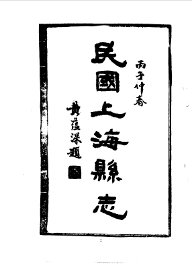 丙子仲春
民國上海縣志
黃蘊深題